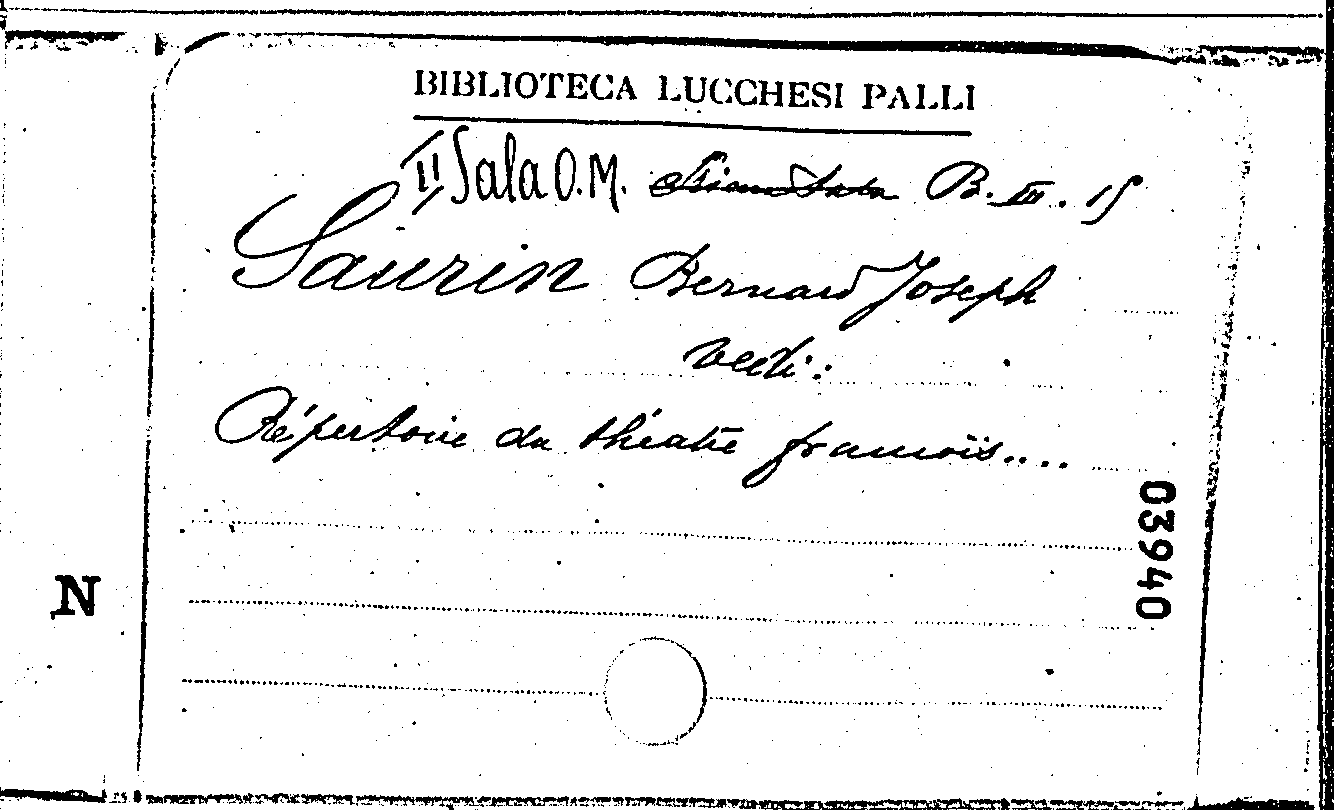 BIBLIOTECA LUCCHESI PALLI
II Sala O.M. B. III. 15
Saurin Bernard Joseph
Vedi:
Répertoire du théatre françois....
03940
N